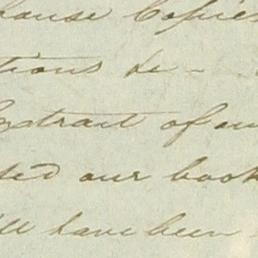 house Copies
tions &c -
Extract of ou
ted our book
ill have been